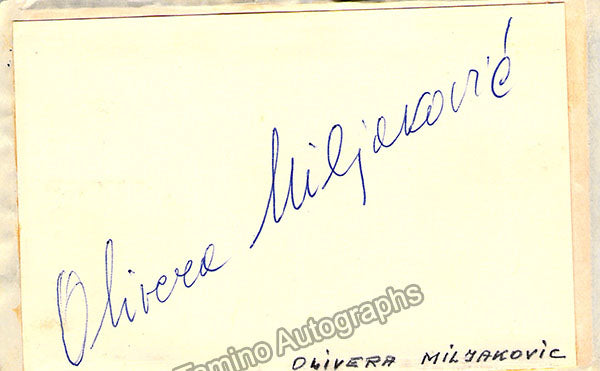 Olivera Miljaković
Tamino Autographs
OLIVERA MILJAKOVIC